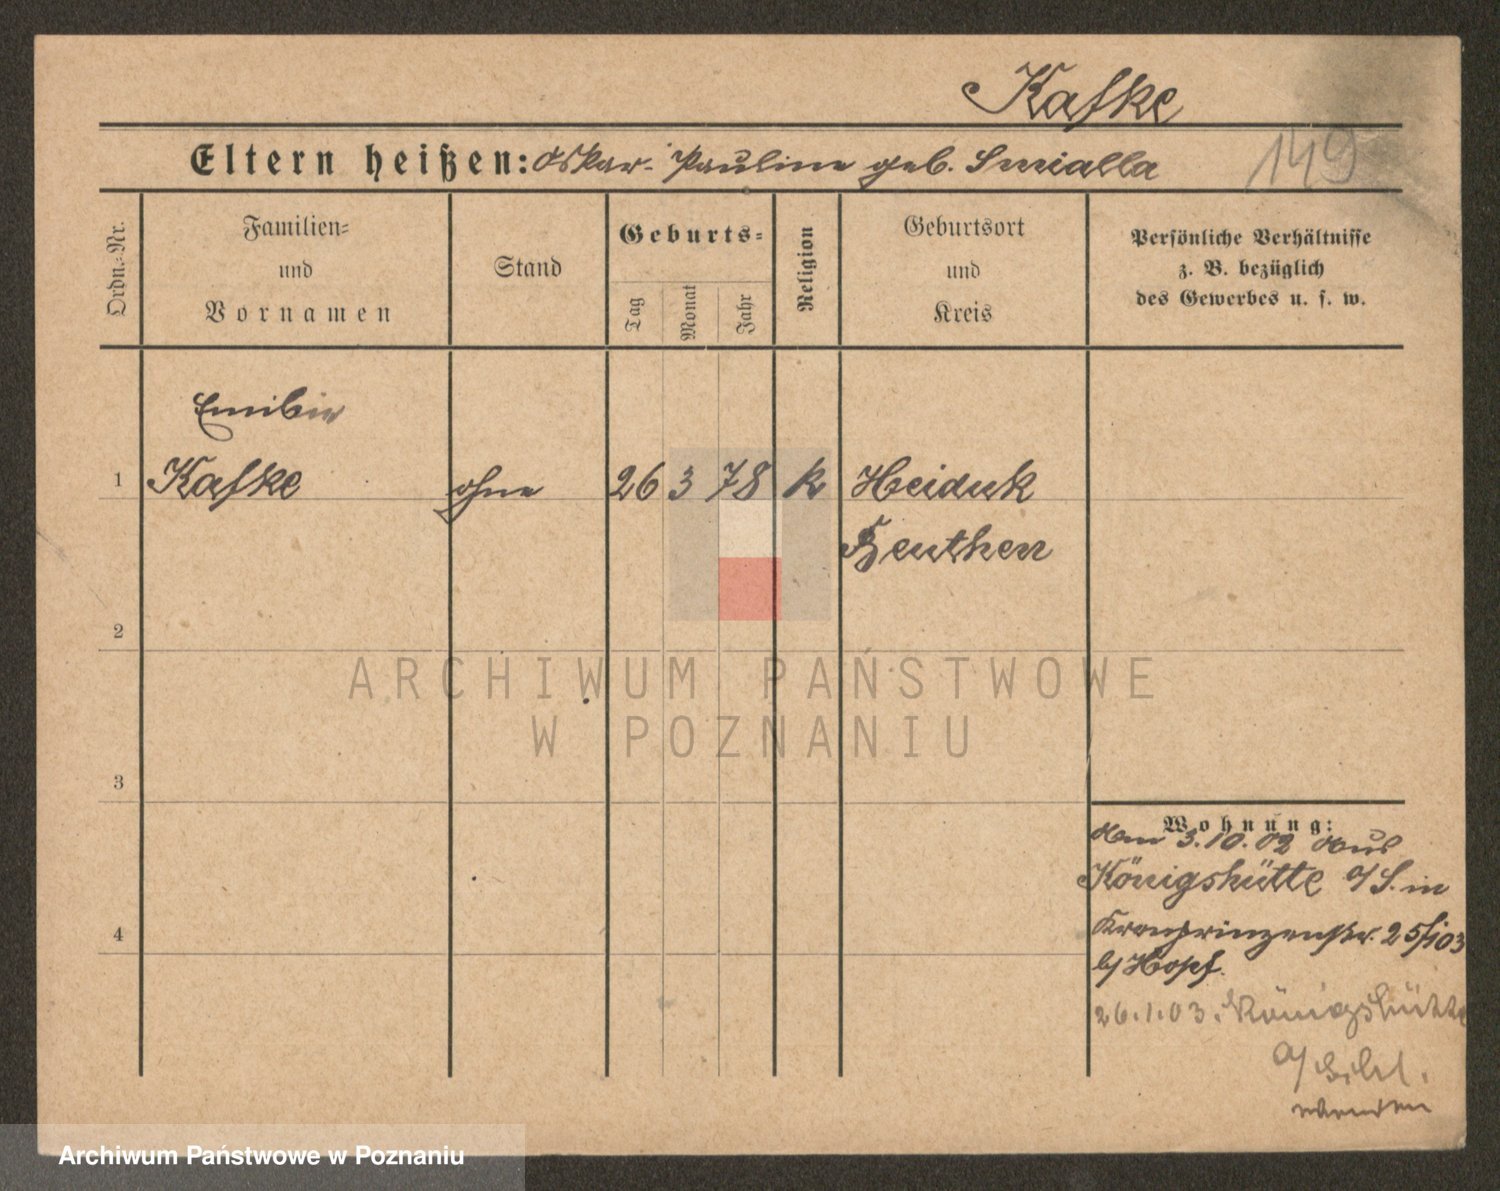 Kafke
149
Eltern heißen: Oskar. Pauline geb. Smialla
Ordn.=Nr.
Familien=
und
Vornamen
Stand
Geburts=
Tag
Monat
Jahr
Religion
Geburtsort
und
Kreis
Persönliche Verhältnisse
z. B. bezüglich
des Gewerbes u. s. w.
Emilie
1 Kafke ohne 26 3 78 k Heiduk
Beuthen
2
ARCHIWUM PAŃSTWOWE
W POZNANIU
3
Wohnung:
Am 3.10.02 aus
Königshütte o/S. in
4 Kronprinzenstr. 25
b/ Hopf.
26.1.03. Königshütte
wenden
Archiwum Państwowe w Poznaniu